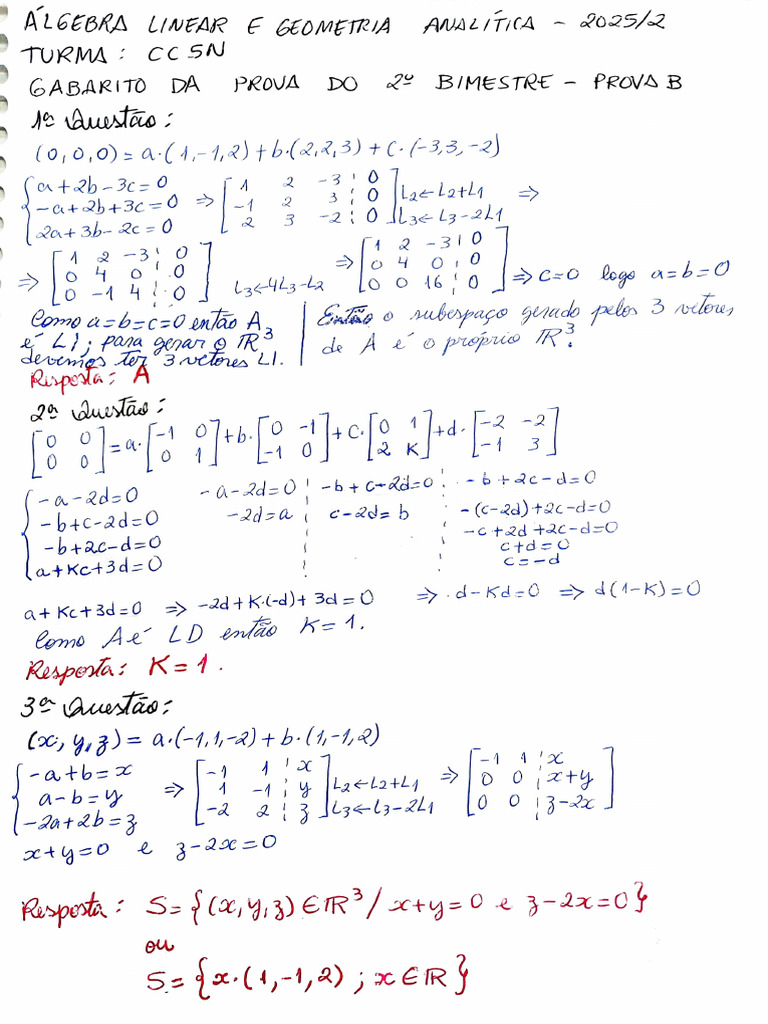 ÁLGEBRA LINEAR E GEOMETRIA ANALÍTICA - 2025/2
TURMA: CC5N
GABARITO DA PROVA DO 2º BIMESTRE - PROVA B
1ª Questão:
(0,0,0) = a·(1,-1,2) + b·(2,2,3) + c·(-3,3,-2)
{ a+2b-3c=0
-a+2b+3c=0
2a+3b-2c=0
⇒ [ 1 2 -3 ¦ 0
-1 2 3 ¦ 0
2 3 -2 ¦ 0 ] L2←L2+L1
L3←L3-2L1 ⇒
⇒ [ 1 2 -3 ¦ 0
0 4 0 ¦ 0
0 -1 4 ¦ 0 ] L3←4L3-L2
⇒ [ 1 2 -3 ¦ 0
0 4 0 ¦ 0
0 0 16 ¦ 0 ] ⇒ c=0 logo a=b=0
Como a=b=c=0 então A
é LI; para gerar o IR³
devemos ter 3 vetores LI.
Então o subespaço gerado pelos 3 vetores
de A é o próprio IR³.
Resposta: A
2ª Questão:
[ 0 0
0 0 ] = a·[ -1 0
0 1 ] + b·[ 0 -1
-1 0 ] + c·[ 0 1
2 K ] + d·[ -2 -2
-1 3 ]
{ -a-2d=0
-b+c-2d=0
-b+2c-d=0
a+Kc+3d=0
-a-2d=0
-2d=a
-b+c-2d=0
c-2d=b
-b+2c-d=0
-(c-2d)+2c-d=0
-c+2d+2c-d=0
c+d=0
c=-d
a+Kc+3d=0 ⇒ -2d+K·(-d)+3d=0 ⇒ d-Kd=0 ⇒ d(1-K)=0
Como A é LD então K=1.
Resposta: K=1.
3ª Questão:
(x,y,z) = a·(-1,1,-2) + b·(1,-1,2)
{ -a+b=x
a-b=y
-2a+2b=z
⇒ [ -1 1 ¦ x
1 -1 ¦ y
-2 2 ¦ z ] L2←L2+L1
L3←L3-2L1
⇒ [ -1 1 ¦ x
0 0 ¦ x+y
0 0 ¦ z-2x ]
x+y=0 e z-2x=0
Resposta: S={(x,y,z)∈IR³/ x+y=0 e z-2x=0}
ou
S={x·(1,-1,2); x∈IR}